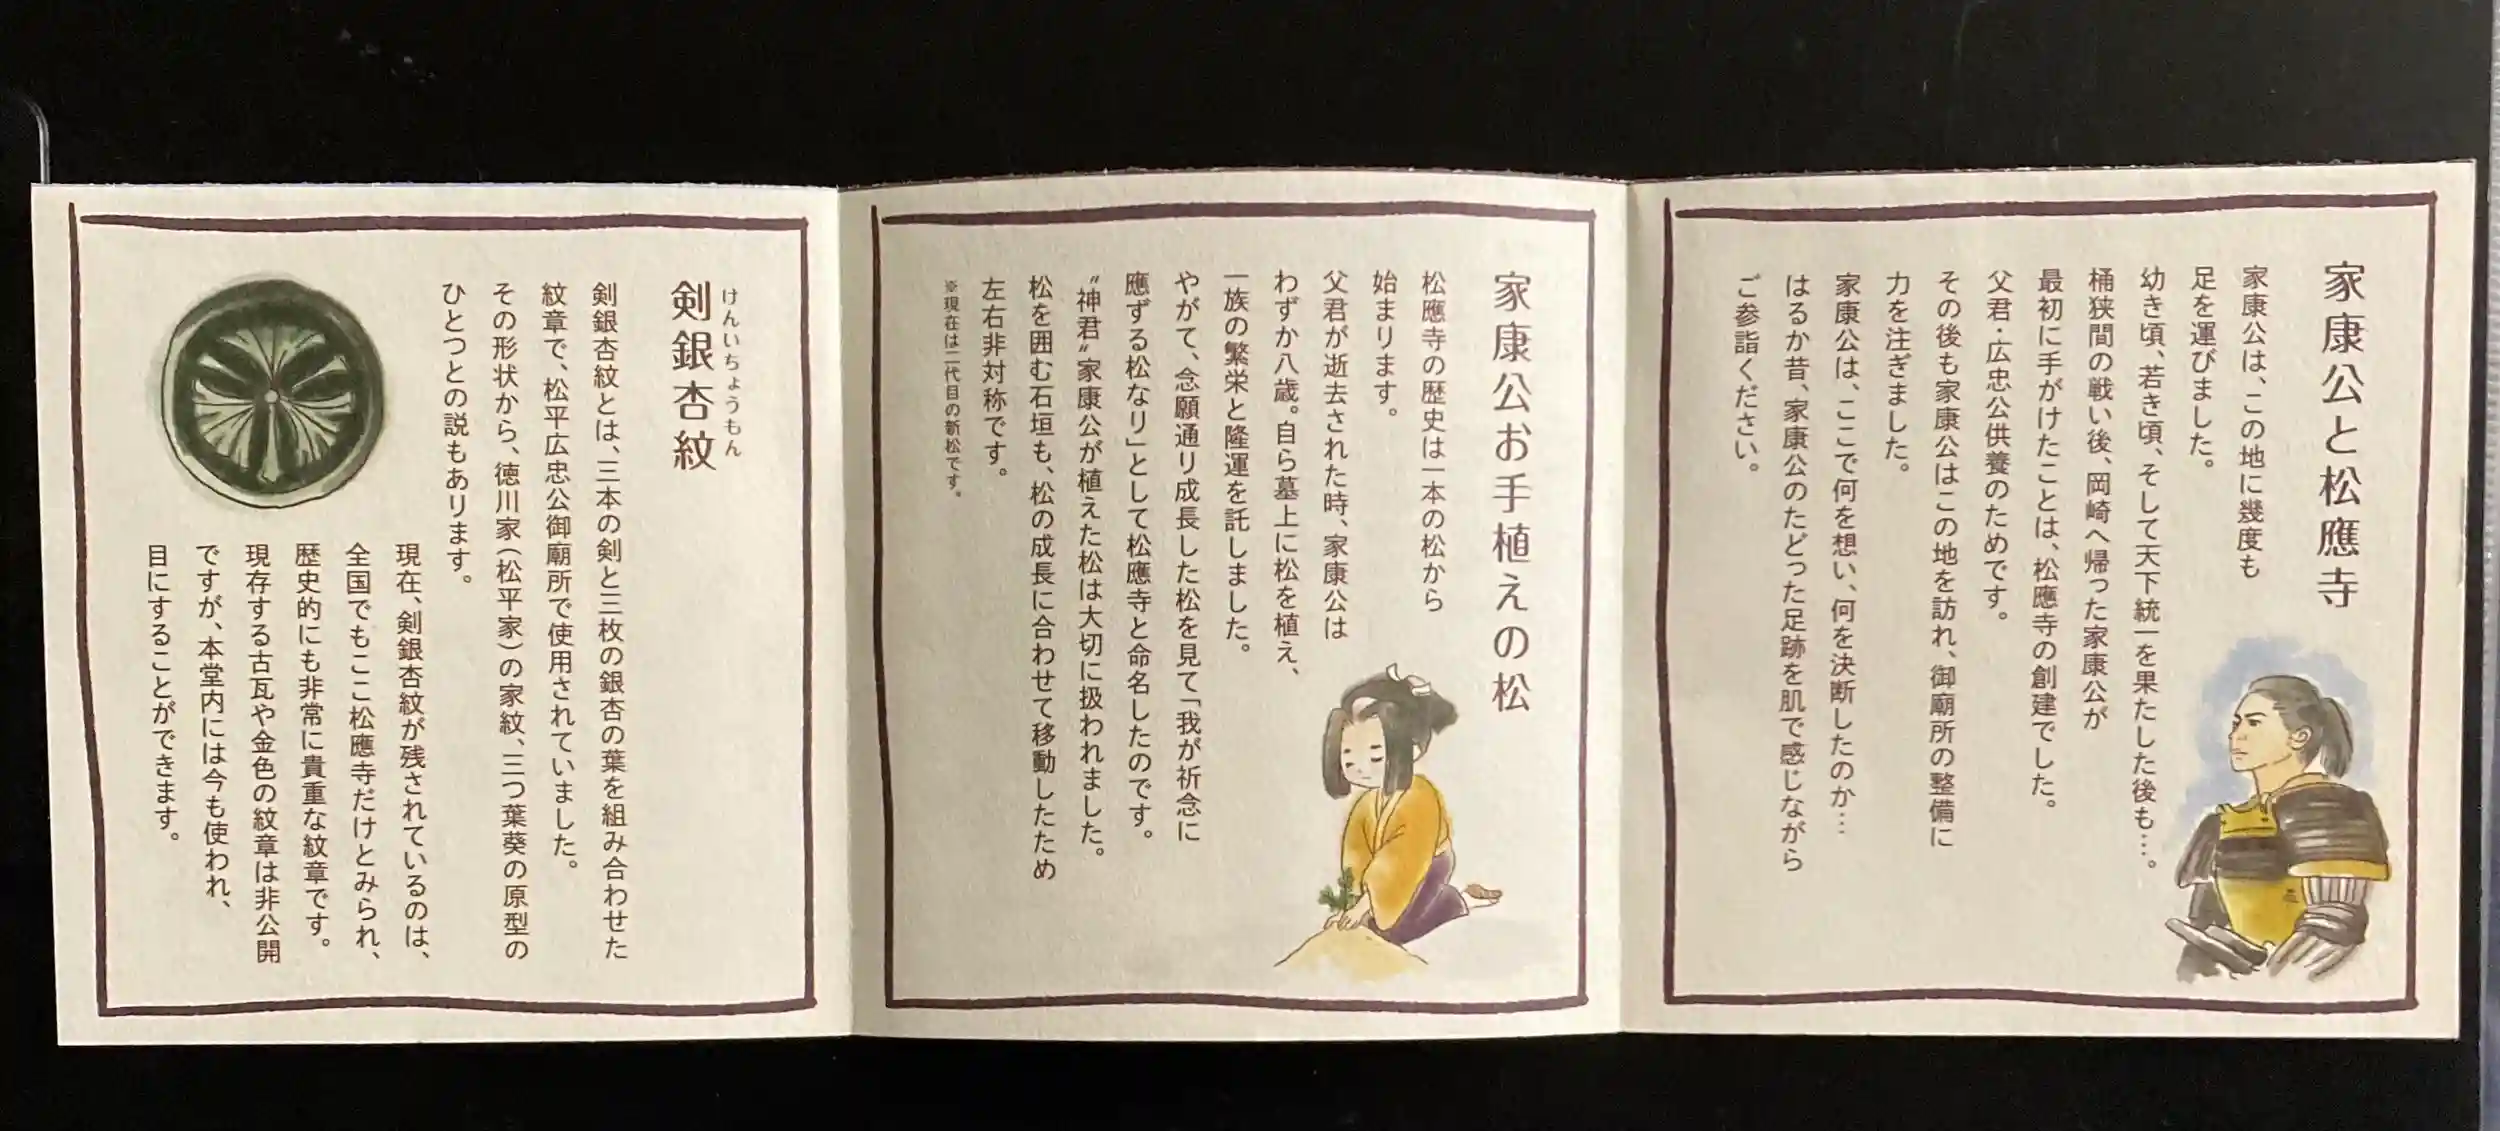 家康公と松應寺
家康公は、この地に幾度も
足を運びました。
幼き頃、若き頃、そして天下統一を果たした後も…。
桶狭間の戦い後、岡崎へ帰った家康公が
最初に手がけたことは、松應寺の創建でした。
父君・広忠公供養のためです。
その後も家康公はこの地を訪れ、御廟所の整備に
力を注ぎました。
家康公は、ここで何を想い、何を決断したのか…
はるか昔、家康公のたどった足跡を肌で感じながら
ご参詣ください。
家康公お手植えの松
松應寺の歴史は一本の松から
始まります。
父君が逝去された時、家康公は
わずか八歳。自ら墓上に松を植え、
一族の繁栄と隆運を託しました。
やがて、念願通り成長した松を見て「我が祈念に
應ずる松なり」として松應寺と命名したのです。
〝神君〟家康公が植えた松は大切に扱われました。
松を囲む石垣も、松の成長に合わせて移動したため
左右非対称です。
※現在は二代目の新松です。
けんいちょうもん
剣銀杏紋
剣銀杏紋とは、三本の剣と三枚の銀杏の葉を組み合わせた
紋章で、松平広忠公御廟所で使用されていました。
その形状から、徳川家（松平家）の家紋、三つ葉葵の原型の
ひとつとの説もあります。
現在、剣銀杏紋が残されているのは、
全国でもここ松應寺だけとみられ、
歴史的にも非常に貴重な紋章です。
現存する古瓦や金色の紋章は非公開
ですが、本堂内には今も使われ、
目にすることができます。